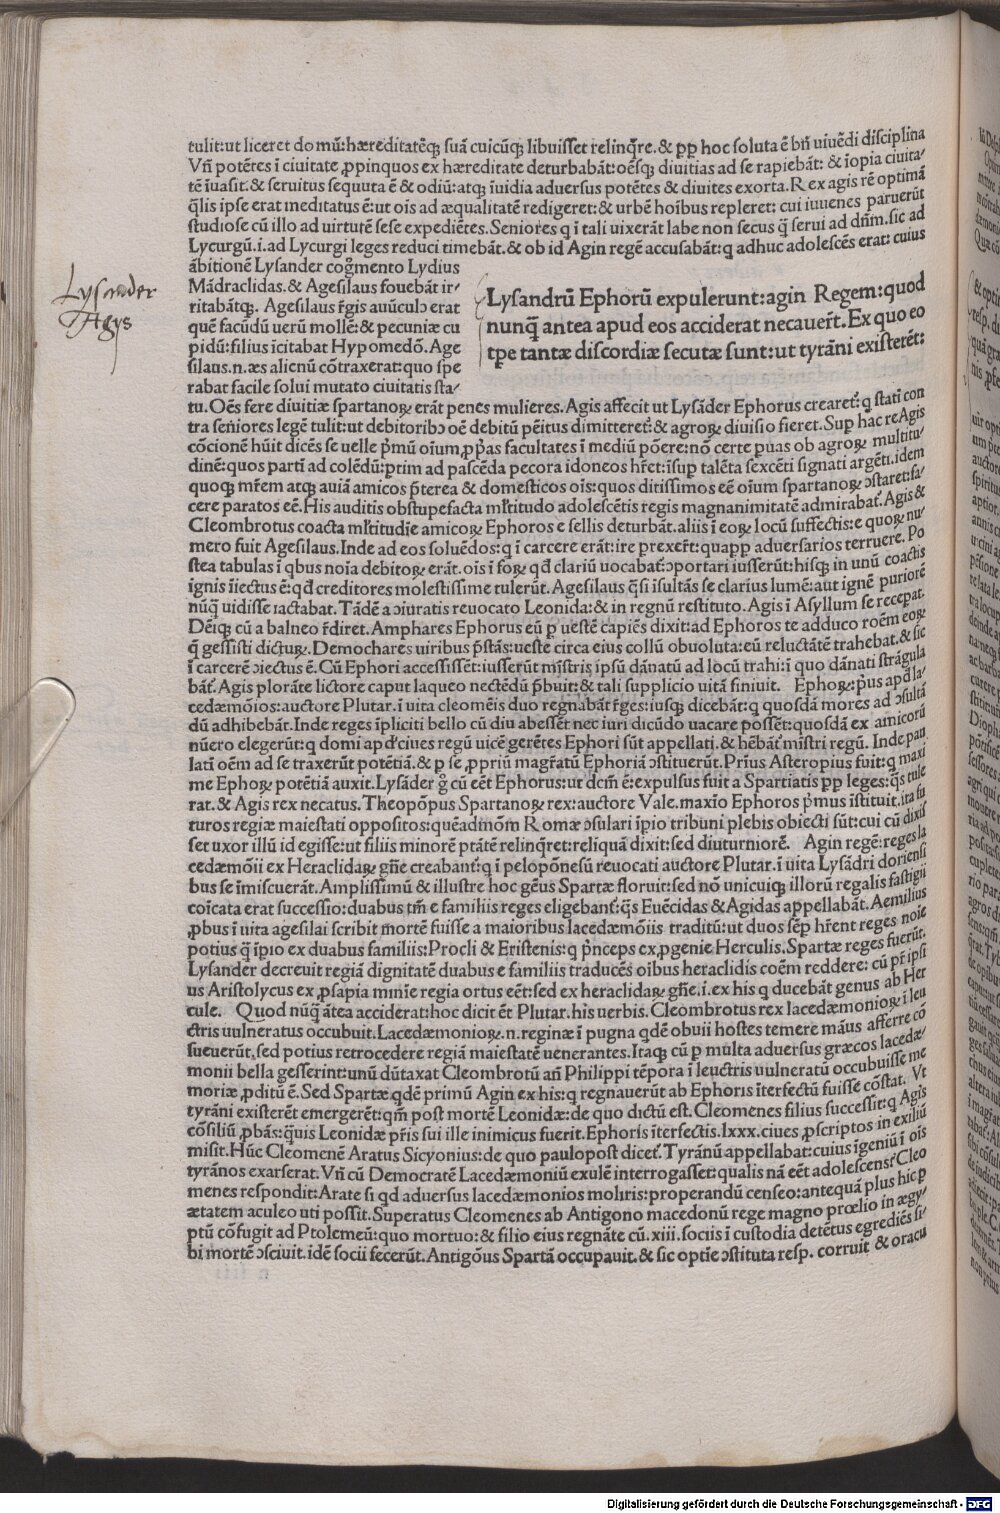 tulit:ut liceret domū:hæreditatēq; suā cuicūq; libuisset relinq̄re.& ꝑp hoc soluta ē bn̄ uiuēdi disciplina
Vn̄ potētes ī ciuitate ꝓpinquos ex hæreditate deturbabāt:oēsq; diuitias ad se rapiebāt: & īopia ciuita-
tē īuasit.& seruitus sequuta ē & odiū:atq; īuidia aduersus potētes & diuites exorta.Rex agis rē optimā
q̄lis ipse erat meditatus ē:ut oīs ad æqualitatē redigeret:& urbē hoībus repleret: cui iuuenes paruerūt
studiose cū illo ad uirtutē sese expediētes.Seniores q ī tali uixerāt labe non secus q̄ serui ad dn̄m.sic ad
Lycurgū.i.ad Lycurgi leges reduci timebāt.& ob id Agin regē accusabāt:q adhuc adolescēs erat: cuius
ābitionē Lysander cog̃mento Lydius
Mādraclidas.& Agesilaus fouebāt ir-
ritabātq;. Agesilaus r̄gis auūculꝰ erat
quē facūdū uerū mollē:& pecuniæ cu
pidū:filius īcitabat Hypomedō.Age
silaus.n.æs alienū cōtraxerat:quo spe
rabat facile solui mutato ciuitatis sta-
Lysander
Agys
Lysandrū Ephorū expulerunt:agin Regem:quod
nunq̄ antea apud eos acciderat necauer̄t.Ex quo eo
tp̄e tantæ discordiæ secutæ sunt:ut tyrāni existerēt:
tu.Oēs fere diuitiæ spartanoꝝ erāt penes mulieres.Agis affecit ut Lysāder Ephorus crearet᷑:q stati con
tra seniores legē tulit:ut debitoribꝰ oē debitū pēitus dimitteret᷑:& agroꝝ diuisio fieret.Sup hac re Agis
cōcionē hūit dicēs se uelle p̄mū oīum,ꝓp̄as facultates ī mediū pōere:nō certe puas ob agroꝝ multitu-
dinē:quos partī ad colēdū:prim ad pascēda pecora idoneos hr̄et:īsup talēta sexcēti signati argēti.idem
quoq; mr̄em atq; auiā amicos p̄terea & domesticos oīs:quos ditissimos eē oīum spartanoꝝ ↄstaret:fa-
cere paratos eē.His auditis obstupefacta ml̄titudo adolescētis regis magnanimitatē admirabat᷑.Agis &
Cleombrotus coacta ml̄titudīe amicoꝝ Ephoros e sellis deturbāt.aliis ī eoꝝ locū suffectis:e quoꝝ nu-
mero fuit Agesilaus.Inde ad eos soluēdos:q ī carcere erāt:ire prexer̄t:quapp aduersarios terruere.Po
stea tabulas ī qbus noīa debitoꝝ erāt.oīs ī foꝝ qd̄ clariū uocabat᷑:ↄportari iusserūt:hisq; in unū coactis
ignis īiectus ē:qd̄ creditores molestissime tulerūt.Agesilaus q̄si īsultās se clarius lumē:aut ignē puriorē
nūq̄ uidisse iactabat.Tādē a ↄiuratis reuocato Leonida:& in regnū restituto.Agis ī Asyllum se recepat.
Dēiq; cū a balneo r̄diret.Amphares Ephorus eū p uestē capiēs dixit:ad Ephoros te adduco roēm eoꝝ
q̄ gessisti dictuꝝ.Demochares uiribus p̄stās:ueste circa eius collū obuoluta:eū reluctātē trahebat.& sic
ī carcerē ↄiectus ē.Cū Ephori accessisset:iusserūt mistris ipsū dānatū ad locū trahi:ī quo dānati strāgula
bāt᷑.Agis plorāte lictore caput laqueo nectēdū p̄buit:& tali supplicio uitā finiuit. Ephoꝝ:p̄us apd̄ la-
cedæmōios:auctore Plutar.ī uita cleomēis duo regnabāt r̄ges:iusq; dicebāt:q quosdā mores ad ↄsultā
dū adhibebāt.Inde reges īpliciti bello cū diu abesset nec iuri dicūdo uacare possēt:quosdā ex amicorū
nūero elegerūt:q domi apd̄ ciues regū uicē gerētes Ephori sūt appellati.& hēbāt᷑ mīstri regū. Inde pau
latī oēm ad se traxerūt potētiā.& p se ꝓpriū magr̄atū Ephoriā ↄstituerūt.Prīus Asteropius fuit:q maxi
me Ephoꝝ potētiā auxit.Lysāder g̊ cū eēt Ephorus:ut dcm̄ ē:expulsus fuit a Spartiatis ꝑp leges:q̄s tule
rat.& Agis rex necatus.Theopōpus Spartanoꝝ rex:auctore Vale.maxīo Ephoros p̄mus īstituit.ita fu
turos regiæ maiestati oppositos:quēadmōm Romæ ↄsulari īpio tribuni plebis obiecti sūt:cui cū dixis
set uxor illū id egisse:ut filiis minorē ptātē relinq̄ret:reliquā dixit:sed diuturniorē. Agin regē:reges la
cedæmōii ex Heraclidaꝝ gn̄e creabant᷑:q ī peloponēsū reuocati auctore Plutar.ī uita Lysādri doriensi
bus se īmiscuerāt.Amplissimū & illustre hoc gēus Spartæ floruit:sed nō unicuiq; illorū regalis fastigii
coīcata erat successio:duabus tm̄ e familiis reges eligebant᷑:q̄s Euēcidas & Agidas appellabāt.Aemilius
ꝓbus ī uita agesilai scribit mortē fuisse a maioribus lacedæmōiis traditū:ut duos sēp hr̄ent reges noīe
potius q̄ īpio ex duabus familiis:Procli & Eristenis:q p̄nceps ex ꝓgenie Herculis.Spartæ reges fuerūt.
Lysander decreuit regiā dignitatē duabus e familiis traducēs oībus heraclidis coēm reddere: cū pr̄ ipsi
us Aristolycus ex ꝓsapia minīe regia ortus eēt:sed ex heraclidaꝝ gn̄e.i.ex his q ducebāt genus ab Her
cule. Quod nūq̄ ātea acciderat:hoc dicit ēt Plutar.his uerbis.Cleombrotus rex lacedæmonioꝝ ī leu
ctris uulneratus occubuit.Lacedæmonioꝝ.n.reginæ ī pugna qdē obuii hostes temere māus afferre cō
sueuerūt.sed potius retrocedere regiā maiestatē uenerantes.Itaq; cū p multa aduersus græcos lacedæ-
monii bella gesserint:unū dūtaxat Cleombrotū an̄ Philippi tēpora ī leuctris uulneratū occubuisse me
moriæ ꝓditū ē.Sed Spartæ qdē primū Agin ex his:q regnauerūt ab Ephoris īterfectū fuisse cōstat. Vt
tyrāni existerēt emergerēt:qm̄ post mortē Leonidæ:de quo dictū est.Cleomenes filius successit:q Agis
cōsiliū ꝓbās:q̄uis Leonidæ pr̄is sui ille inimicus fuerit.Ephoris īterfectis.lxxx.ciues ꝓscriptos in exiliū
misit.Hūc Cleomenē Aratus Sicyonius:de quo paulopost dicet᷑.Tyrānū appellabat:cuius īgeniū ī oīs
tyrānos exarserat.Vn̄ cū Democratē Lacedæmoniū exulē interrogasset:qualis nā eēt adolescens?Cleo
menes respondit:Arate si qd aduersus lacedæmonios moliris:properandū censeo:antequā plus hic p
ætatem aculeo uti possit.Superatus Cleomenes ab Antigono macedonū rege magno prœlio in ægy-
ptū cōfugit ad Ptolemeū:quo mortuo:& filio eius regnāte cū.xiii.sociis ī custodia detētus egrediēs si-
bi mortē ↄsciuit.idē socii fecerūt.Antigōus Spartā occupauit.& sic optīe ↄstituta resp. corruit & oracu
Digitalisierung gefördert durch die Deutsche Forschungsgemeinschaft - DFG